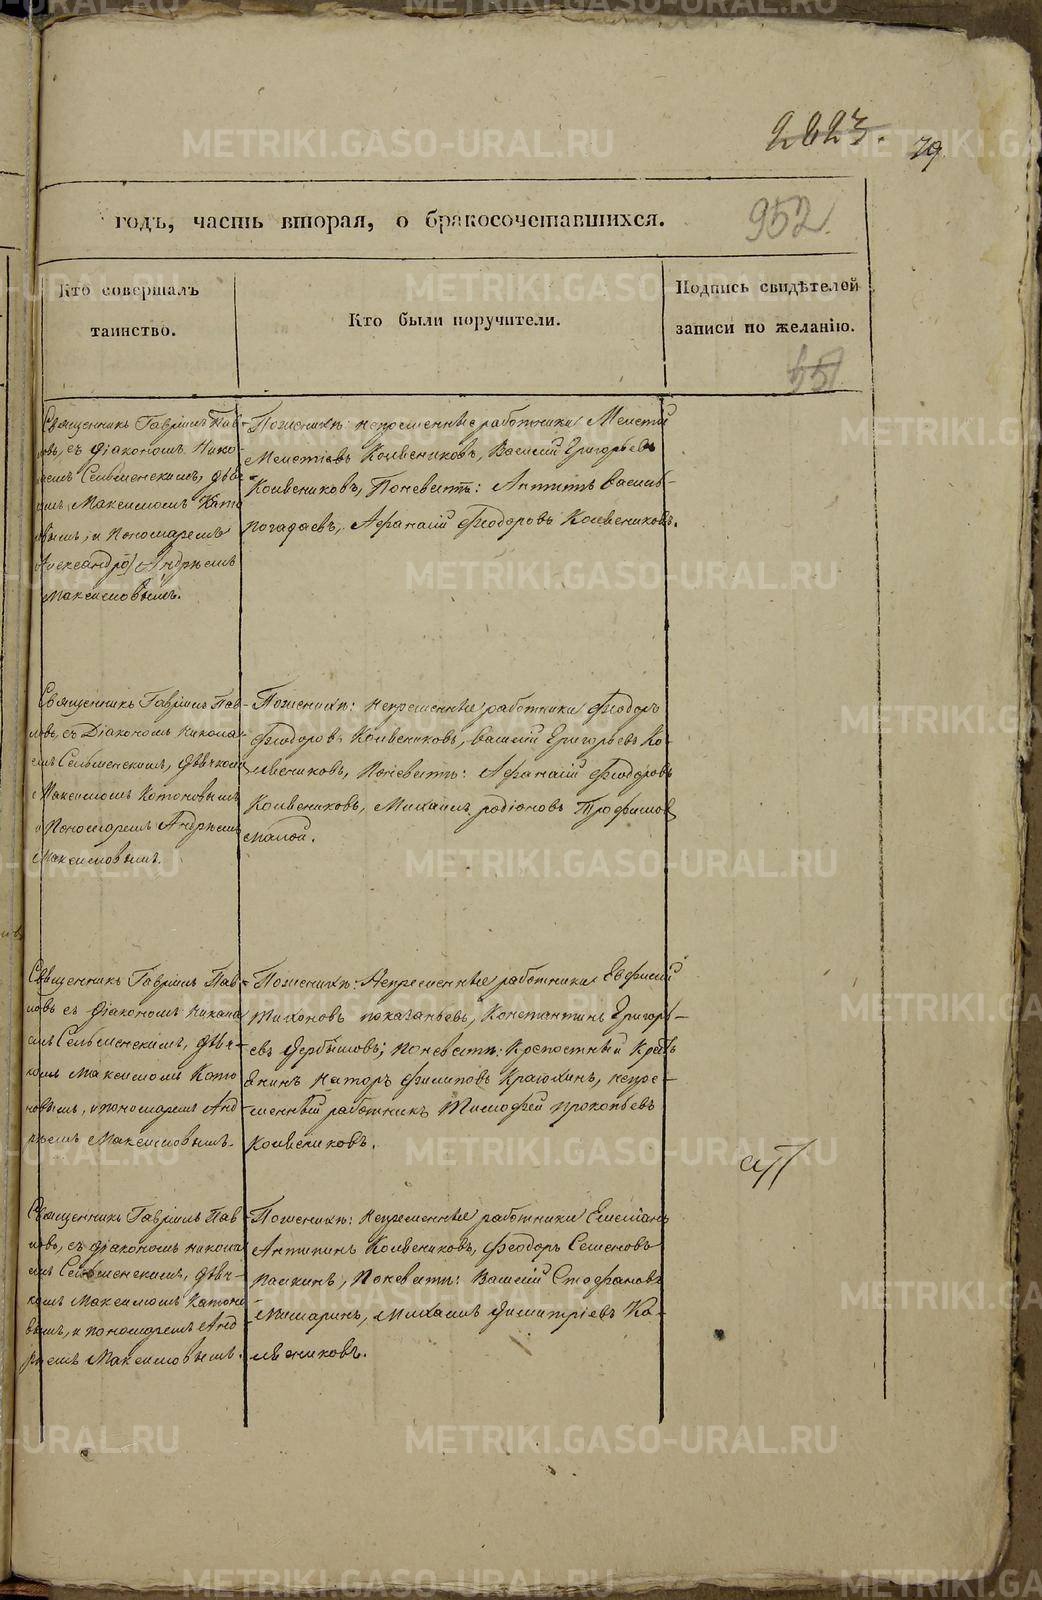 2623.
79
годъ, часть вторая, о бракосочетавшихся.
952
Кто совершалъ
таинство.
Кто были поручители.
Подпись свидѣтелей
записи по желанію.
Священникъ Гавріилъ Пав-
ловъ, съ Діакономъ Нико-
лаемъ Сельменскимъ, дьяч-
комъ Максимомъ Като-
новымъ, и Пономаремъ
Андрѣемъ
Максимовымъ.
По женихѣ: непременные работники Мелетій
Мелетіевъ Колвениковъ, Василій Григорьевъ
Колвениковъ, По невѣстѣ: Антипъ Василь-
Погадаевъ, Афанасій Феодоровъ Колвениковъ.
Священникъ Гавріилъ Пав-
ловъ, съ Діакономъ Никола-
емъ Сельменскимъ, дьячкомъ
Максимомъ Котоновымъ
и Пономаремъ Андрѣемъ
Максимовымъ.
По женихѣ: непременные работники Феодоръ
Феодоровъ Колвениковъ, Василій Григорьевъ Ко-
лвениковъ, по невѣстѣ: Афанасій Феодоровъ
Колвениковъ, Михаилъ Родіоновъ Трофимов
малой.
Священникъ Гавріилъ Пав-
ловъ съ Діакономъ Никола
емъ Сельменскимъ, дьяч-
комъ Максимомъ Кото
новымъ, и пономаремъ Анд
рѣемъ Максимовымъ.
По женихѣ: Непременные работники Евфимій
Тихоновъ Показаньевъ, Константинъ Григорь-
евъ Дербышовъ; по невѣстѣ: Крепостный Кресть
янинъ Филиповъ Краюхинъ, непре-
менный работникъ Тимофей Прокопьевъ
Колвениковъ.
Священникъ Гавріилъ Пав
ловъ, съ діакономъ Никола
емъ Сельменскимъ, дьяч-
комъ Максимомъ Катоно
вымъ, и пономаремъ Анд
рѣемъ Максимовымъ.
По женихѣ: Непременные работники Емеліанъ
Антипинъ Колвениковъ, Феодоръ Семеновъ
Палкинъ, По невѣстѣ: Василій Стефановъ
Мишаринъ, Михаилъ Димитріевъ Ко-
лвениковъ.
METRIKI.GASO-URAL.RU